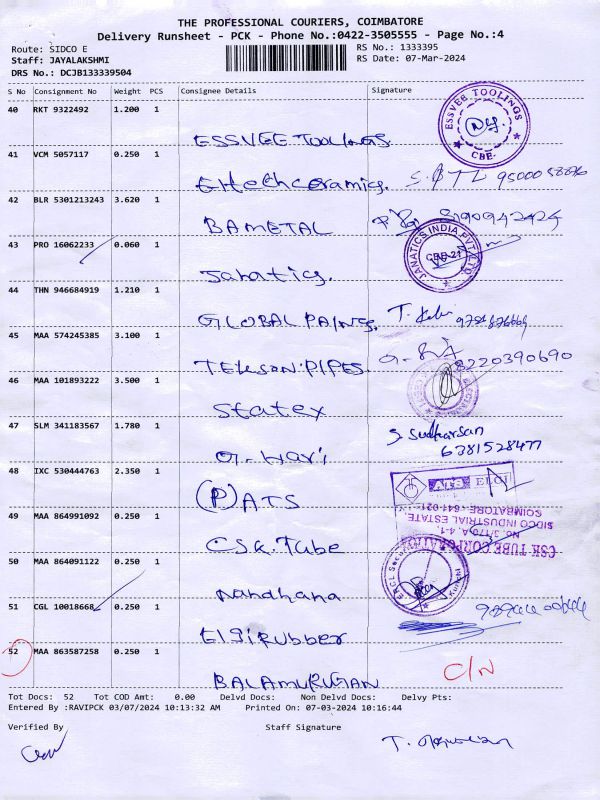 THE PROFESSIONAL COURIERS, COIMBATORE
Delivery Runsheet - PCK - Phone No.:0422-3505555 - Page No.:4
Route: SIDCO E
RS No.: 1333395
Staff: JAYALAKSHMI
RS Date: 07-Mar-2024
DRS No.: DCJB133339504
S No Consignment No Weight PCS Consignee Details Signature
40 RKT 9322492 1.200 1
ESSVEE TOOLINGS
ESSVEE TOOLINGS
CBE-
41 VCM 5057117 0.250 1
EHtechceramics.
42 BLR 5301213243 3.620 1
BAMETAL 8190942424
43 PRO 16062233 0.060 1
Janatics.
JANATICS INDIA PVT LTD
CBE-21
44 THN 946684919 1.210 1
GLOBAL PAINTS.
45 MAA 574245385 3.100 1
TEKSON PIPES 8220390690
46 MAA 101893222 3.500 1
Statex
47 SLM 341183567 1.780 1
G. Hari
S Sudharsan
6381528477
48 IXC 530444763 2.350 1
(P) ATS
ATS ELGI
SIDCO INDUSTRIAL ESTATE,
COIMBATORE - 641 021
49 MAA 864991092 0.250 1
CSK. Tube
CSK TUBE CORPORATION
No. 3/170A, 4-1,
50 MAA 864091122 0.250 1
Nandhana
51 CGL 10018668 0.250 1
Elgirubber
52 MAA 863587258 0.250 1
BALAMURUGAN C/N
Tot Docs: 52 Tot COD Amt: 0.00 Delvd Docs: Non Delvd Docs: Delvy Pts:
Entered By :RAVIPCK 03/07/2024 10:13:32 AM Printed On: 07-03-2024 10:16:44
Verified By Staff Signature